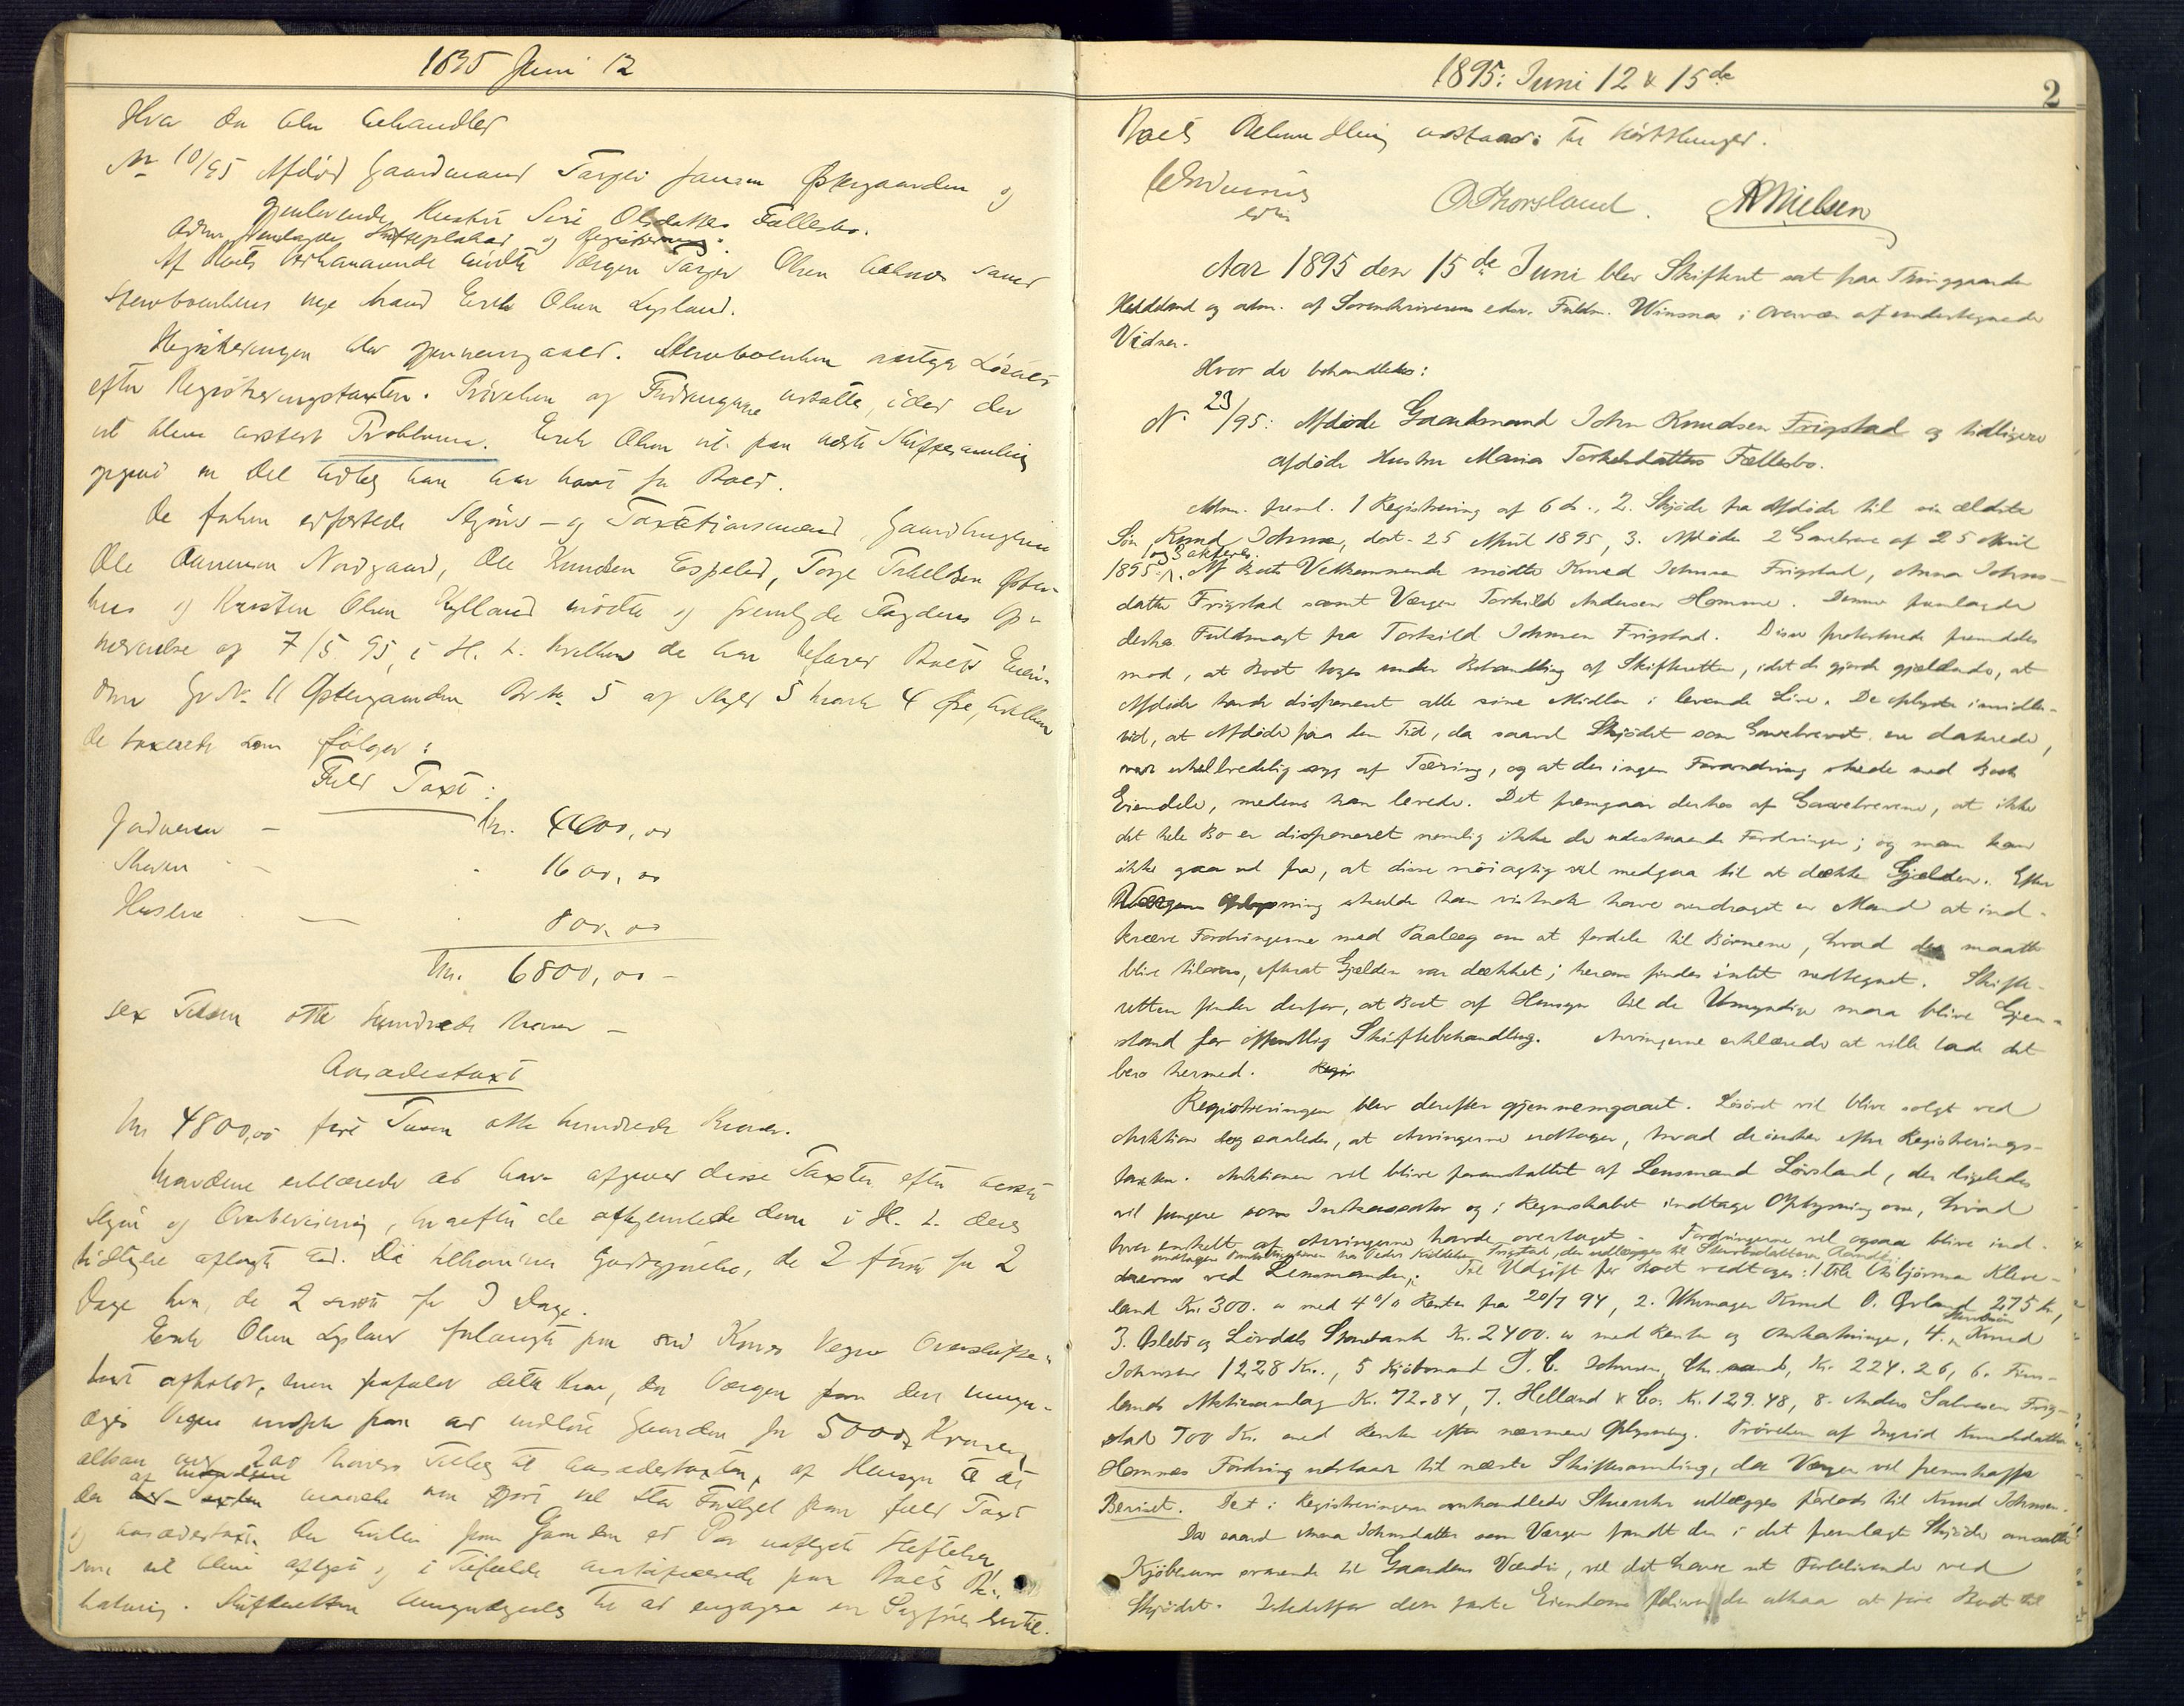 1895 Juni 12
Hvor da blev behandlet
No 10/95 Afdød Gaardmand Targei Jansen Østergaarden og
gjenlevende Hustru Siri Olsdatters Fællesbo.
Adm. fremlagde Skifteplakat og Registrering.
Af Boets Vedkommende mødte Værgen Targei Olsen samt
Stervboenkens nye Mand Erik Olsen Lysland.
Registreringen blev gjennemgaaet. Stervboenken modtog Løsøret
efter Registreringstaxten. Prøvelsen af Fordringerne udsattes, idet der
vil blive udstedt Proklama. Erik Olsen vil paa næste Skiftesamling
opgive en Del Udlæg han har havt for Boet.
De forhen edfæstede Skjøns- og Taxationsmænd, Gaardbrugerne
Ole Aanensen Nordgaard, Ole Knudsen Espeli, Torje Torkelsen Øster-
hus og Kristen Olsen mødte og fremlagde Fogdens Op-
nævnelse af 7/5 95, i H. t. hvilken de har befaret Boets Eien-
dom Gr. No. 11 Østergaarden Br. No. 5 af Skyld 5 Mark 4 Øre, hvilken
de taxerede som følger:
Fuld Taxt:
Jordveien - Kr. 4400,00
Skoven - - 1600,00
Husene - 800,00
Kr. 6800,00 -
sex Tusen otte hundrede Kroner -
Aasædestaxt
Kr 4800,00 fire Tusen otte hundrede Kroner.
Mændene erklærede at have afgivet disse Taxter efter bedste
Skjøn og Overbevisning, hvorefter de afhjemlede dem i H. t. deres
tidligere aflagte Ed. De tilkommer Godtgjørelse, de 2 første for 2
Dage hver, de 2 sidste for 3 Dage.
Erik Olsen Lysland forlangte paa sin Kones Vegne Overskifte-
taxt afholdt, men frafaldt dette Krav, da Værgen paa den umyn-
diges Vegne indgik paa at indløse Gaarden for 5000 Kroner,
altsaa med 200 Kroners Tillæg til Aasædestaxten, af Hensyn til at
der af Mændene maaske var gjort vel stor Forskjel paa fuld Taxt
og Aasædestaxt. Der hviler paa Gaarden et Par uaflyste Heftelser,
som vil blive aflyst og i Tilfælde mortificerede paa Boets Be-
kostning. Skifteretten bemyndigedes til at engagere en Sagfører hertil.
1895: Juni 12 & 15de
2
Boets Behandling udstaar til Kortslutning.
O Thorsland. A Nielsen
Aar 1895 den 15de Juni blev Skifteret sat paa Thinggaarden
Heddeland og adm. af Sorenskriverens edsv. Fuldm. Winsnes i Overvær af undertegnede
Vidner.
Hvor da behandledes:
No. 23/95: Afdøde Gaardmand John Knudsen Frigstad og tidligere
afdøde Hustru Maria Torkelsdatters Fællesbo.
Adm. freml. 1 Registrering af 6 ds., 2. Skjøde fra Afdøde til sin ældste
Søn Knud Johnsen, dat. 25 April 1895, 3. Afdødes 2 Gavebreve af 25 April
og 3 akteres.
1895. Af Boets Vedkommende mødte Knud Johnsen Frigstad, Anna Johns-
datter Frigstad samt Værgen Torkild Andersen Homme. Denne fremlagde
derhos Fuldmagt fra Torkild Johnsen Frigstad. Disse protesterede fremdeles
mod, at Boet toges under Behandling af Skifteretten, idet de gjorde gjældende, at
Afdøde havde disponeret alle sine Midler i levende Live. De oplyste imidler-
tid, at Afdøde paa den Tid, da saavel Skjødet som Gavebrevet er daterede,
var uhelbredelig syg af Tæring, og at der ingen Forandring skede med Boets
Eiendele, medens han levede. Det fremgaar derhos af Gavebrevene, at ikke
det hele Bo er disponeret nemlig ikke de udestaaende Fordringer; og man kan
ikke gaa ud fra, at disse nøiagtig vil medgaa til at dække Gjælden. Efter
Værgens Oplysning skulde han vistnok have overdraget en Mand at ind-
kræve Fordringerne med Paalæg om at fordele til Børnene, hvad der maatte
blive tilovers, efterat Gjælden var dækket; herom findes intet nedtegnet. Skifte-
retten finder derfor, at Boet af Hensyn til de Umyndige maa blive Gjen-
stand for offentlig Skiftebehandling. Arvingerne erklærede at ville lade det
bero hermed. Regis
Registreringen blev derefter gjennemgaaet. Løsøret vil blive solgt ved
Auktion dog saaledes, at Arvingerne udtager, hvad de ønsker efter Registrerings-
taxten. Auktionen vil blive foranstaltet af Lensmand Løvsland, der ligeledes
vil fungere som Inkassator og i Regnskabet indtage Oplysning om, hvad
hver enkelt af Arvingerne havde overtaget. Fordringerne vil ogsaa blive ind-
undtagen Fordringen hos Peder Kiddelsen Frigstad, der udlægges til Stervbodatteren Aanda.
drevne ved Lensmanden. Til Udgift for Boet vedtoges: 1 til Asbjørn Kleve-
land Kr. 300.00 med 4 % Renter fra 20/7 94, 2. Uhrmager Knud O. Øvland 275 Kr,
3. Oslebø og Løvdals Sparebank Kr. 2400.00 med Renter og Omkostninger, 4. Stervbosøn Knud
Johnsen 1228 Kr., 5 Kjøbmand P. C. Johnsen, Chr.sand, Kr. 224.26, 6. Fins-
lands Aktiesamlag Kr. 72.84, 7. Helland & Co. Kr. 129.48, 8. Anders Salvesen Frig-
stad 700 Kr. med Renter efter nærmere Oplysning. Prøvelsen af Ingrid Knudsdatter
Hommes Fordring udstaar til næste Skiftesamling, da Værgen vil fremskaffe
Beviset. Det i Registreringen omhandlede Stueuhr udlægges forlods til Knud Johnsen.
Da saavel Anna Johnsdatter som Værgen fandt den i det fremlagte Skjøde ansatte
Kjøbesum svarende til Gaardens Værdi, vil det have sit Forblivende ved
Skjødet. Istedetfor den faste Eiendom bliver der altsaa at føre Boet til